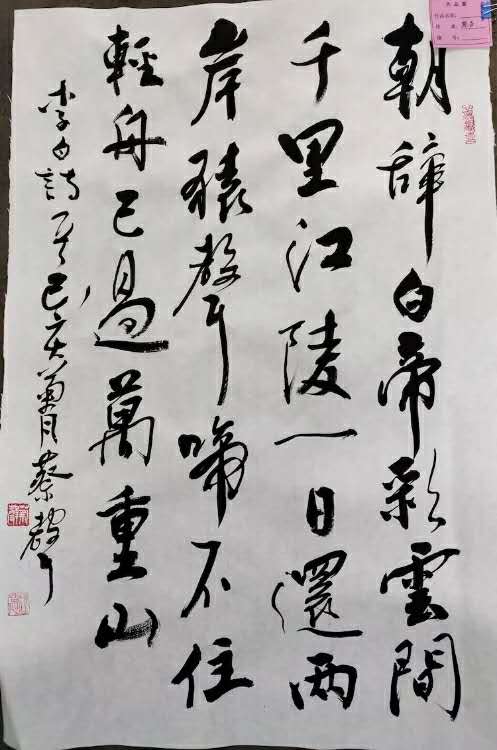 朝辞白帝彩雲間
千里江陵一日還两
岸猿聲啼不住
輕舟已過萬重山
李白詩一首己亥菊月蔡聲